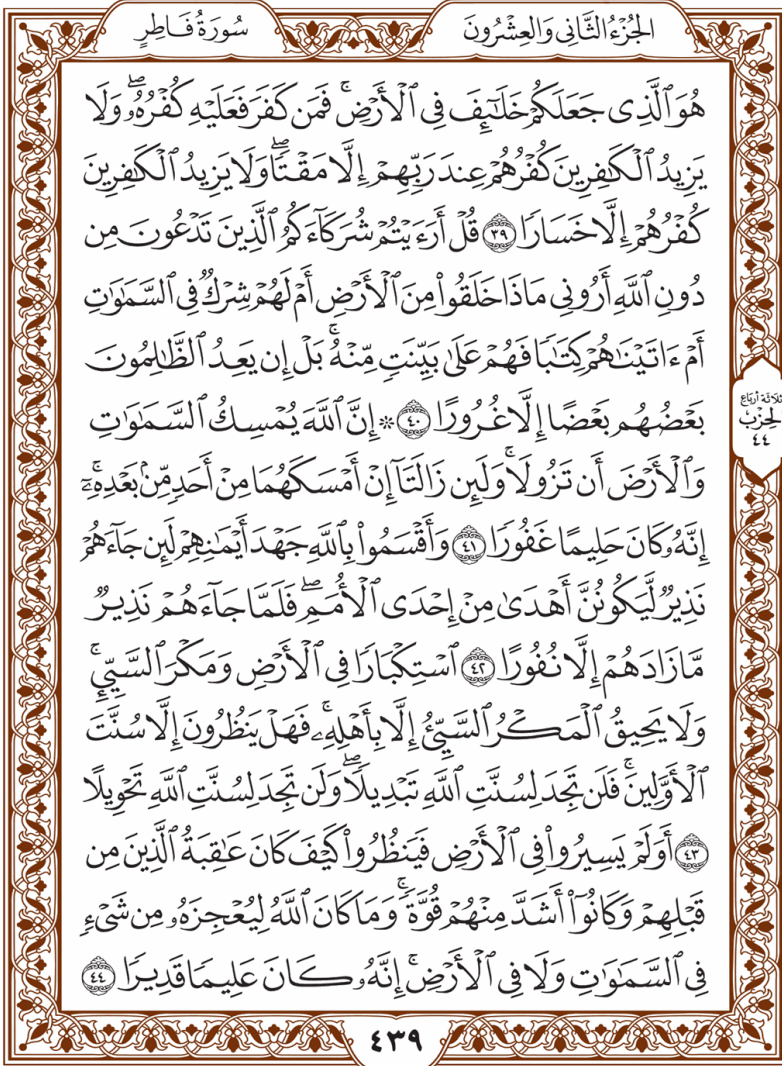 الجُزْءُ الثَّانِي وَالعِشْرُونَ
سُورَةُ فَاطِرٍ
هُوَ ٱلَّذِى جَعَلَكُمْ خَلَـٰٓئِفَ فِى ٱلْأَرْضِ ۚ فَمَن كَفَرَ فَعَلَيْهِ كُفْرُهُۥ ۖ وَلَا
يَزِيدُ ٱلْكَـٰفِرِينَ كُفْرُهُمْ عِندَ رَبِّهِمْ إِلَّا مَقْتًا ۖ وَلَا يَزِيدُ ٱلْكَـٰفِرِينَ
كُفْرُهُمْ إِلَّا خَسَارًا ٣٩ قُلْ أَرَءَيْتُمْ شُرَكَآءَكُمُ ٱلَّذِينَ تَدْعُونَ مِن
دُونِ ٱللَّهِ أَرُونِى مَاذَا خَلَقُوا۟ مِنَ ٱلْأَرْضِ أَمْ لَهُمْ شِرْكٌ فِى ٱلسَّمَـٰوَٰتِ
أَمْ ءَاتَيْنَـٰهُمْ كِتَـٰبًا فَهُمْ عَلَىٰ بَيِّنَتٍ مِّنْهُ ۚ بَلْ إِن يَعِدُ ٱلظَّـٰلِمُونَ
بَعْضُهُم بَعْضًا إِلَّا غُرُورًا ٤٠ ۞ إِنَّ ٱللَّهَ يُمْسِكُ ٱلسَّمَـٰوَٰتِ
وَٱلْأَرْضَ أَن تَزُولَا ۚ وَلَئِن زَالَتَآ إِنْ أَمْسَكَهُمَا مِنْ أَحَدٍ مِّنۢ بَعْدِهِۦٓ ۚ
إِنَّهُۥ كَانَ حَلِيمًا غَفُورًا ٤١ وَأَقْسَمُوا۟ بِٱللَّهِ جَهْدَ أَيْمَـٰنِهِمْ لَئِن جَآءَهُمْ
نَذِيرٌ لَّيَكُونُنَّ أَهْدَىٰ مِنْ إِحْدَى ٱلْأُمَمِ ۖ فَلَمَّا جَآءَهُمْ نَذِيرٌ
مَّا زَادَهُمْ إِلَّا نُفُورًا ٤٢ ٱسْتِكْبَارًا فِى ٱلْأَرْضِ وَمَكْرَ ٱلسَّيِّئِ ۚ
وَلَا يَحِيقُ ٱلْمَكْرُ ٱلسَّيِّئُ إِلَّا بِأَهْلِهِۦ ۚ فَهَلْ يَنظُرُونَ إِلَّا سُنَّتَ
ٱلْأَوَّلِينَ ۚ فَلَن تَجِدَ لِسُنَّتِ ٱللَّهِ تَبْدِيلًا ۖ وَلَن تَجِدَ لِسُنَّتِ ٱللَّهِ تَحْوِيلًا
٤٣ أَوَلَمْ يَسِيرُوا۟ فِى ٱلْأَرْضِ فَيَنظُرُوا۟ كَيْفَ كَانَ عَـٰقِبَةُ ٱلَّذِينَ مِن
قَبْلِهِمْ وَكَانُوٓا۟ أَشَدَّ مِنْهُمْ قُوَّةً ۚ وَمَا كَانَ ٱللَّهُ لِيُعْجِزَهُۥ مِن شَىْءٍ
فِى ٱلسَّمَـٰوَٰتِ وَلَا فِى ٱلْأَرْضِ ۚ إِنَّهُۥ كَانَ عَلِيمًا قَدِيرًا ٤٤
ثلاثة أرباع
الحزب
٤٤
٤٣٩